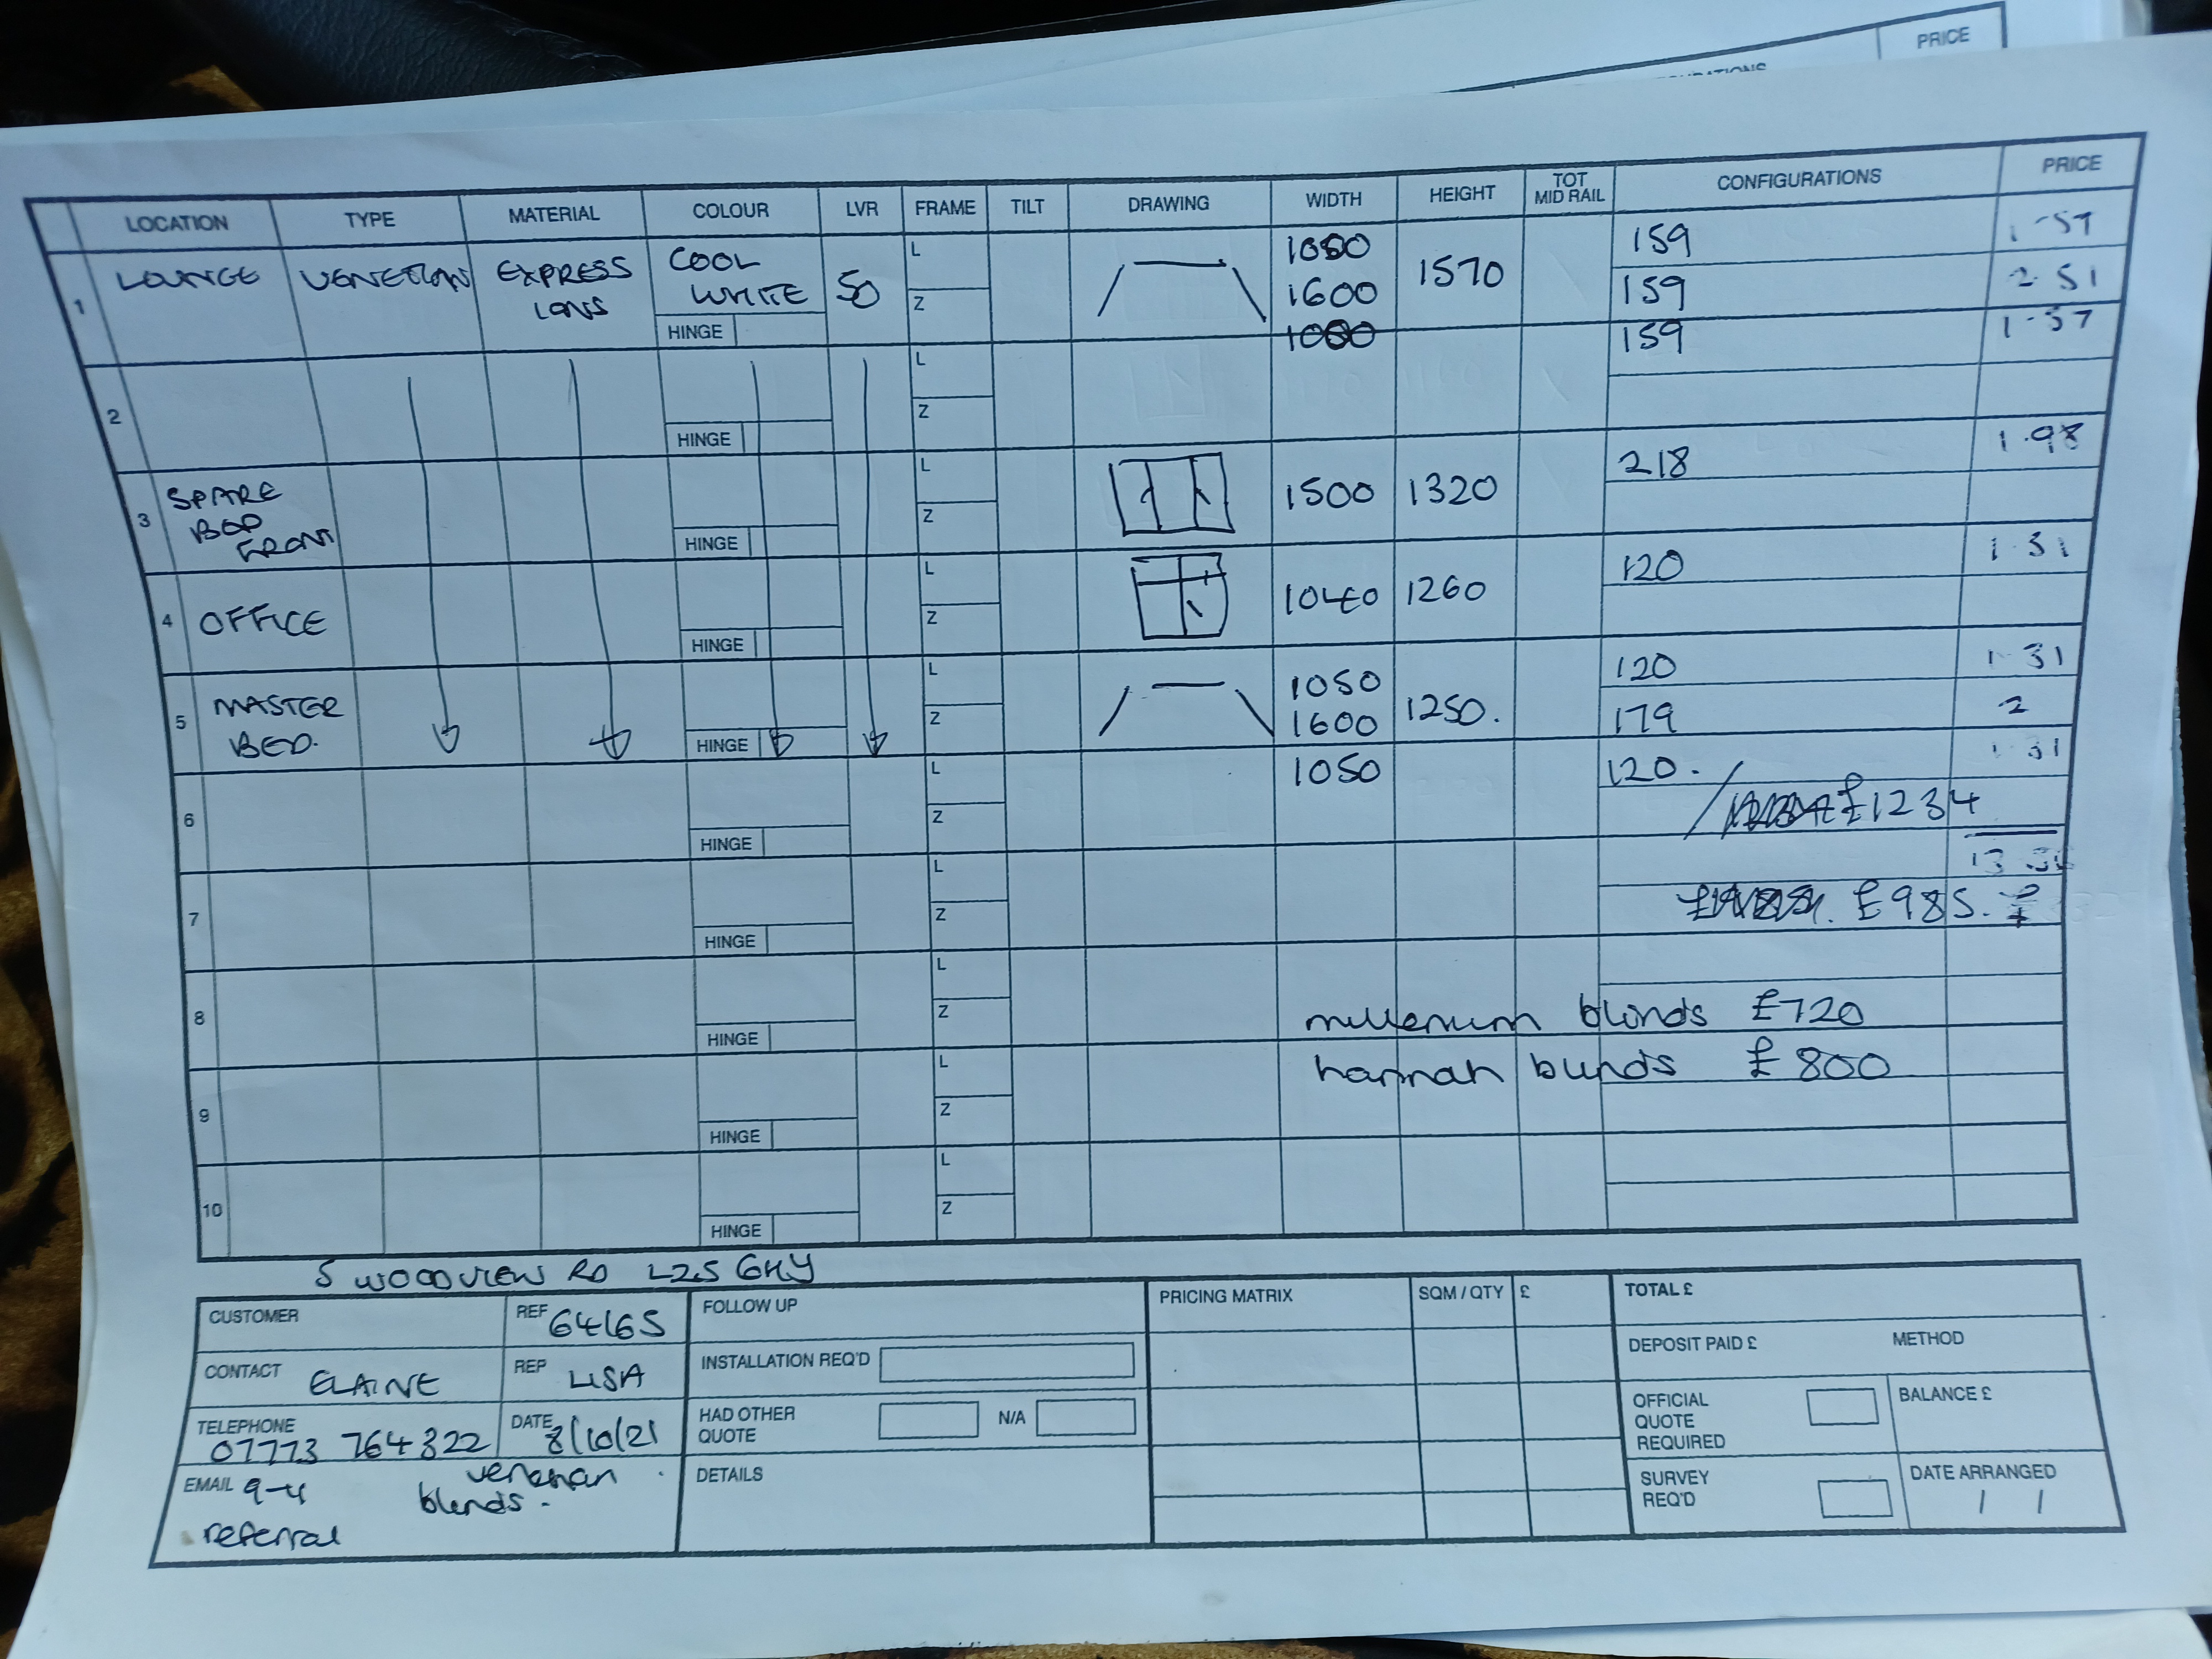 PRICE
LOCATION TYPE MATERIAL COLOUR LVR FRAME TILT DRAWING WIDTH HEIGHT TOT MID RAIL CONFIGURATIONS PRICE
1 LOUNGE VENETIAN EXPRESS IONS COOL WHITE 50 L 1570 159
Z 1600 159 2 51
HINGE 159
2 L
Z
HINGE
3 SPARE BED FRONT L 1500 1320 218 1.98
Z
HINGE
4 OFFICE L 1040 1260 120 1 31
Z
HINGE
5 MASTER BED. L 1050 1250. 120 1 31
Z 1600 179 2
HINGE
6 L 1050 120. 1 31
Z £1234
HINGE
7 L
Z £985.
HINGE
8 L
Z millenium blinds £720
HINGE
9 L hannah blinds £800
Z
HINGE
10 L
Z
HINGE
5 WOODVIEW RD L25 6HY
CUSTOMER REF 64165
CONTACT ELAINE REP LISA
TELEPHONE 07773 764322 DATE 8/10/21
EMAIL 9-4 venetian
blinds.
referral
FOLLOW UP
INSTALLATION REQ'D
HAD OTHER QUOTE N/A
DETAILS
PRICING MATRIX SQM / QTY £
TOTAL £
DEPOSIT PAID £ METHOD
OFFICIAL QUOTE REQUIRED BALANCE £
SURVEY REQ'D DATE ARRANGED
/ /